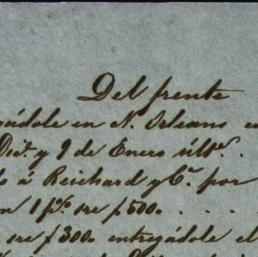 Del frente
gádole en N. Orleans
Dic.e y 9 de Enero últ.o.
á Reichard y C.a por
1 p% sre $500. . . . .
sre $300 entregádole el